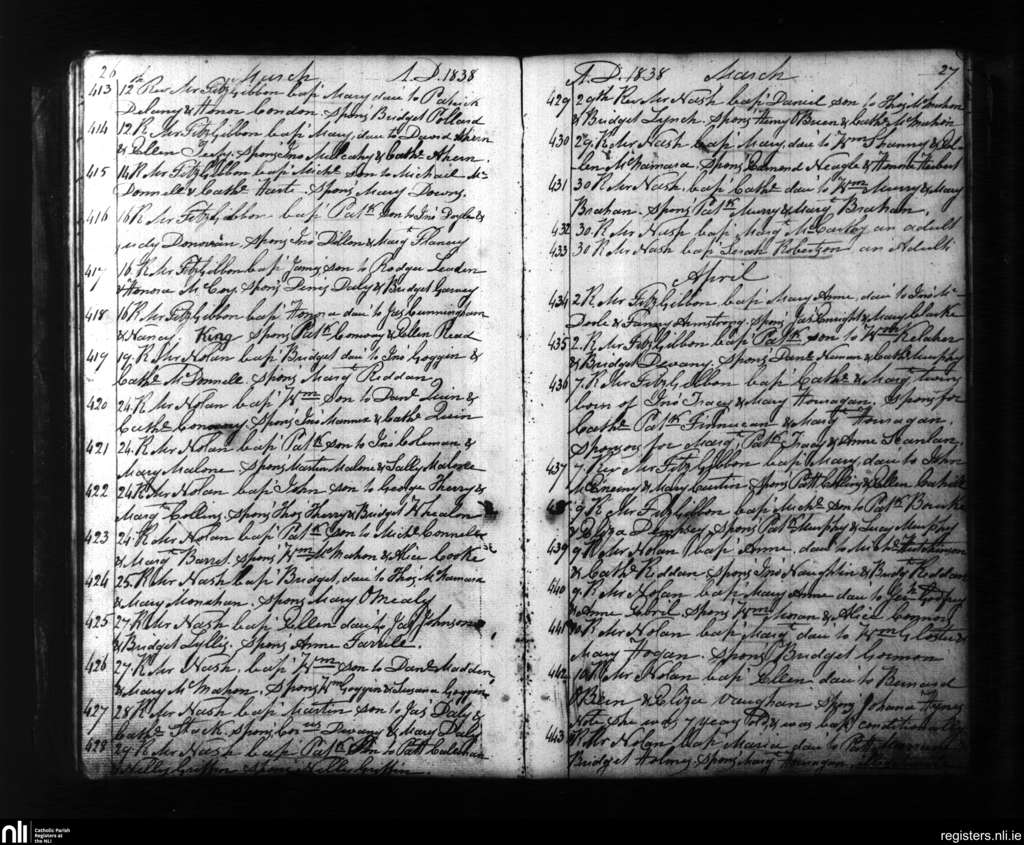 26 March A.D. 1838
413 12th Rev Mr FitzGibbon bap' Mary dau to Patrick
Delany & Honor Condon. Spons Budget Pollard
414 12 R Mr FitzGibbon bap' Mary dau to David Ahern
& Ellen Spons Jno Mulcahy & Cathe Ahern.
415 14 R Mr FitzGibbon bap' Michl son to Michail Mc
Donnell & Cathe Harte. Spons Mary Downy.
416 16 R Mr FitzGibbon bap' Patk son to Jno Doyle &
Judy Donovan. Spons Jno Dillon & Margt Flancy
417 16 R Mr FitzGibbon bap' James son to Rodger Leaden
& Honora McCoy. Spons Denis Daly & Bridget Garvey
418 16 R Mr FitzGibbon bap' Honora dau to Jas Cunningham
& Nancy King Spons Patk Conway & Ellen Read
419 19. R Mr Nolan bap' Bridget dau to Jno Goggin &
Cathe McDonnell. Spons Margt Roddan
420 24. R Mr Nolan bap' Wm son to Danl Quin &
Cathe Conway. Spons Jno & Cathe Quin
421 24. R Mr Nolan bap' Patk son to Jno Coleman &
Mary Malone. Spons Martin Malone & Sally Malone
422 24 R Mr Nolan bap' John son to George Sherry &
Margt Collins. Spons Thos Sherry & Bridget Whealon
423 24. R Mr Nolan bap' Patk son to Michl Connell
& Margt Barret. Spons Wm McMahon & Alice Cooke
424 25. R Mr Nash bap' Bridget dau to Thos McNamara
& Mary Monahan. Spons Mary O'Mealy
425 27. R Mr Nash bap' Ellen dau to Jas Johnson
& Bridget Lyllis. Spons Anne Farrile.
426 27. R Mr Nash bap' Wm son to Danl Madden
& Mary McMahon. Spons Wm Goggin & Susana Goggin
427 28 R Mr Nash bap' Martin son to Jas Daly &
Cathe Stock. Spons Corns Devany & Mary Daly
428 29. R Mr Nash bap' Patk son to Patt Calahan
& Nelly Griffin spons Nelly Griffin.
A.D. 1838 March 27
429 29th Rev Mr Nash bap' Daniel son to Thos McMahon
& Budget Lynch. Spons Harry O'Brien & Cathe McMahon
430 29. R Mr Nash bap' Mary dau to Wm Shanny & El
len McNamara. Spons Edmond Neagle & Honora Herbert
431 30 R Mr Nash bap' Cathe dau to Wm Murry & Mary
Brahan. Spons Patk Murry & Margt Brahan.
432 30. R Mr Nash bap' Margt McCarthy an adult
433 30 R Mr Nash bap' Sarah Robertson an Adult
April
434 2 R Mr FitzGibbon bap' Mary Anne dau to Jno Mc
Doole & Fanny Armstrong. Spons Jas Enright & Mary Clarke
435 2. R Mr FitzGibbon bap' Patk son to Wm Kelaher
& Bridget Devany. Spons Danl & Cathe Murphy
436 7. R Mr FitzGibbon bap' Cathe & Margt twins
born of Jno Tracy & Mary Houragan. Spons for
Cathe Patk Finnucan & Margt Houragan.
sponsors for Margt Patk Tracy & Anne Scanlan.
437 7 Rev Mr FitzGibbon bap' Mary dau to John
McEneiny & Mary Curtin Spons Patt Collins & Ellen Cahill
9. R Mr FitzGibbon bap' Michl son to Patk Bourke
& Eliza Dempsey. Spons Patk Murphy & Lucy Murphy
439 9. R Mr Nolan bap' Anne dau to Michl
& Cathe Riddan Spons Jno Naughtin & Bridgt Roddan
440 9. R Mr Nolan bap' Mary Anne dau to
& Anne Spons Wm Moran & Alice Connors
441 10 R Mr Nolan bap' Margt dau to Wm &
Mary Hogan. Spons Bridget Gorman
442 10. R Mr Nolan bap' Ellen dau to Bernard
O'Brien & Eliza Vaughan Spons Johana Hynes
Note she was 7 years old, & was bap' conditionally
443 R Mr Nolan bap' Maria dau to Patt
Bridget Holmes. Spons Margt Houragan.
nli Catholic Parish
Registers at
the NLI
registers.nli.ie